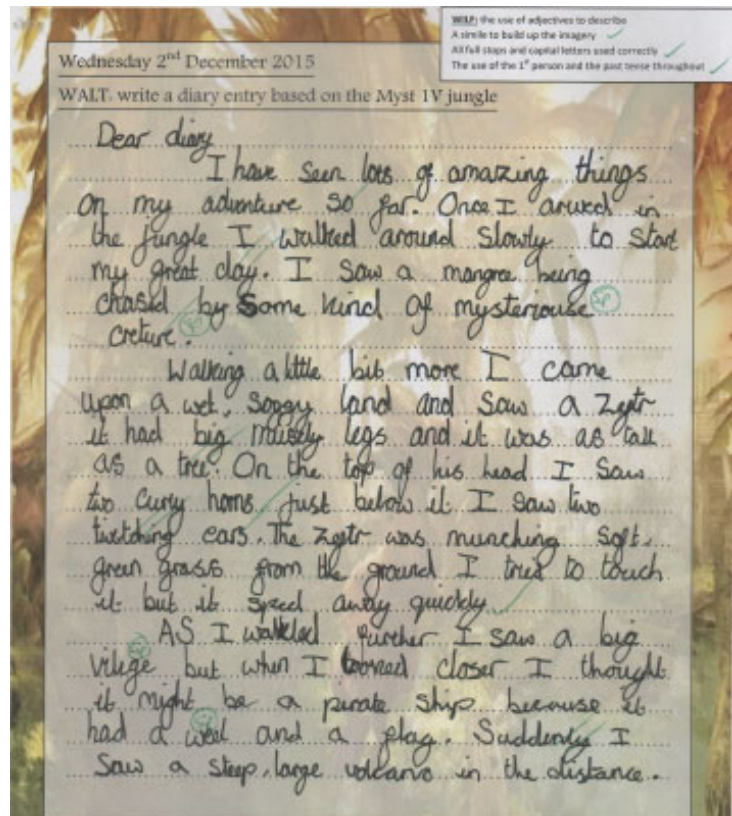 WILF: the use of adjectives to describe
A simile to build up the imagery
All full stops and capital letters used correctly
The use of the 1st person and the past tense throughout
Wednesday 2nd December 2015
WALT: write a diary entry based on the Myst 1V jungle
Dear diary
I have seen lots of amazing things
on my adventure so far. Once I arived in
the jungle I walked around slowly to start
my great day. I saw a mangree being
chased by some kind of mysteriouse
creture.
Walking a little bit more I came
upon a wet, soggy land and saw a Zeftr
it had big legs and it was as tall
as a tree. On the top of his head I saw
two curvy horns just below it I saw two
twitching ears. The zeftr was munching soft,
green grass from the ground I tried to touch
it but it speed away quickly
As I walked further I saw a big
vilege but when I looked closer I thought
it might be a pirate ship because it
had a weel and a flag. Suddenly I
saw a steep, large volcano in the distance.